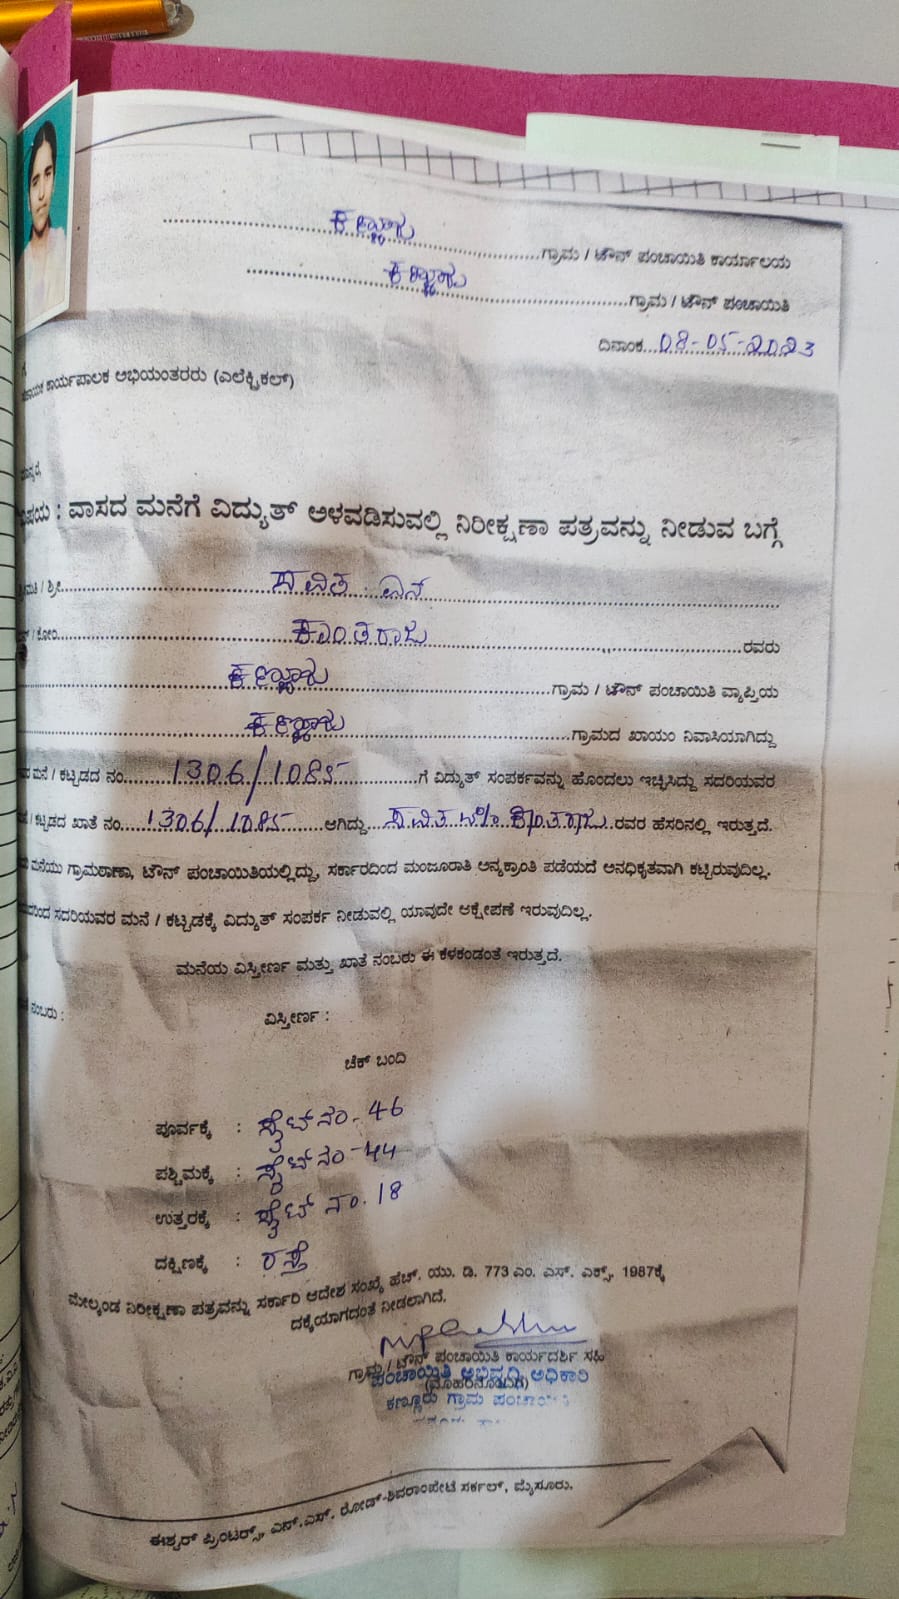 ಕಣ್ಣೂರು ಗ್ರಾಮ / ಟೌನ್ ಪಂಚಾಯಿತಿ ಕಾರ್ಯಾಲಯ
ಕಣ್ಣೂರು ಗ್ರಾಮ / ಟೌನ್ ಪಂಚಾಯಿತಿ
ದಿನಾಂಕ 08-05-2023
ಕಾರ್ಯಪಾಲಕ ಅಭಿಯಂತರರು (ಎಲೆಕ್ಟ್ರಿಕಲ್)
: ವಾಸದ ಮನೆಗೆ ವಿದ್ಯುತ್ ಅಳವಡಿಸುವಲ್ಲಿ ನಿರೀಕ್ಷಣಾ ಪತ್ರವನ್ನು ನೀಡುವ ಬಗ್ಗೆ
/ ಶ್ರೀ ಸವಿತ ಎನ್
/ ಕೋರಿ ಕಾಂತರಾಜು ರವರು
ಕಣ್ಣೂರು ಗ್ರಾಮ / ಟೌನ್ ಪಂಚಾಯಿತಿ ವ್ಯಾಪ್ತಿಯ
ಕಣ್ಣೂರು ಗ್ರಾಮದ ಖಾಯಂ ನಿವಾಸಿಯಾಗಿದ್ದು
ಮನೆ / ಕಟ್ಟಡದ ನಂ 1306/1085 ಗೆ ವಿದ್ಯುತ್ ಸಂಪರ್ಕವನ್ನು ಹೊಂದಲು ಇಚ್ಛಿಸಿದ್ದು ಸದರಿಯವರ
/ ಕಟ್ಟಡದ ಖಾತೆ ನಂ 1306/1085 ಆಗಿದ್ದು ಸವಿತ ಕಾಂತರಾಜು ರವರ ಹೆಸರಿನಲ್ಲಿ ಇರುತ್ತದೆ.
ಮನೆಯು ಗ್ರಾಮಠಾಣಾ, ಟೌನ್ ಪಂಚಾಯಿತಿಯಲ್ಲಿದ್ದು, ಸರ್ಕಾರದಿಂದ ಮಂಜೂರಾತಿ ಅನ್ಯಕ್ರಾಂತಿ ಪಡೆಯದೆ ಅನಧಿಕೃತವಾಗಿ ಕಟ್ಟಿರುವುದಿಲ್ಲ.
ಸದರಿಯವರ ಮನೆ / ಕಟ್ಟಡಕ್ಕೆ ವಿದ್ಯುತ್ ಸಂಪರ್ಕ ನೀಡುವಲ್ಲಿ ಯಾವುದೇ ಆಕ್ಷೇಪಣೆ ಇರುವುದಿಲ್ಲ.
ಮನೆಯ ವಿಸ್ತೀರ್ಣ ಮತ್ತು ಖಾತೆ ನಂಬರು ಈ ಕೆಳಕಂಡಂತೆ ಇರುತ್ತದೆ.
ನಂಬರು : ವಿಸ್ತೀರ್ಣ :
ಚೆಕ್ ಬಂದಿ
ಪೂರ್ವಕ್ಕೆ : ಸೈಟ್ ನಂ - 46
ಪಶ್ಚಿಮಕ್ಕೆ : ಸೈಟ್ ನಂ - 44
ಉತ್ತರಕ್ಕೆ : ಸೈಟ್ ನಂ. 18
ದಕ್ಷಿಣಕ್ಕೆ : ರಸ್ತೆ
ಮೇಲ್ಕಂಡ ನಿರೀಕ್ಷಣಾ ಪತ್ರವನ್ನು ಸರ್ಕಾರಿ ಆದೇಶ ಸಂಖ್ಯೆ ಹೆಚ್. ಯು. ಡಿ. 773 ಎಂ. ಎಸ್. ಎಕ್ಸ್. 1987ಕ್ಕೆ
ದಕ್ಕೆಯಾಗದಂತೆ ನೀಡಲಾಗಿದೆ.
ಗ್ರಾಮ / ಟೌನ್ ಪಂಚಾಯಿತಿ ಕಾರ್ಯದರ್ಶಿ ಸಹಿ
ಪಂಚಾಯಿತಿ ಅಭಿವೃದ್ಧಿ ಅಧಿಕಾರಿ
(ಮೊಹರಿನೊಂದಿಗೆ)
ಕಣ್ಣೂರು ಗ್ರಾಮ ಪಂಚಾಯಿತಿ
ಈಶ್ವರ್ ಪ್ರಿಂಟರ್ಸ್, ಎನ್.ಎಸ್. ರೋಡ್-ಶಿವರಾಂಪೇಟೆ ಸರ್ಕಲ್, ಮೈಸೂರು.